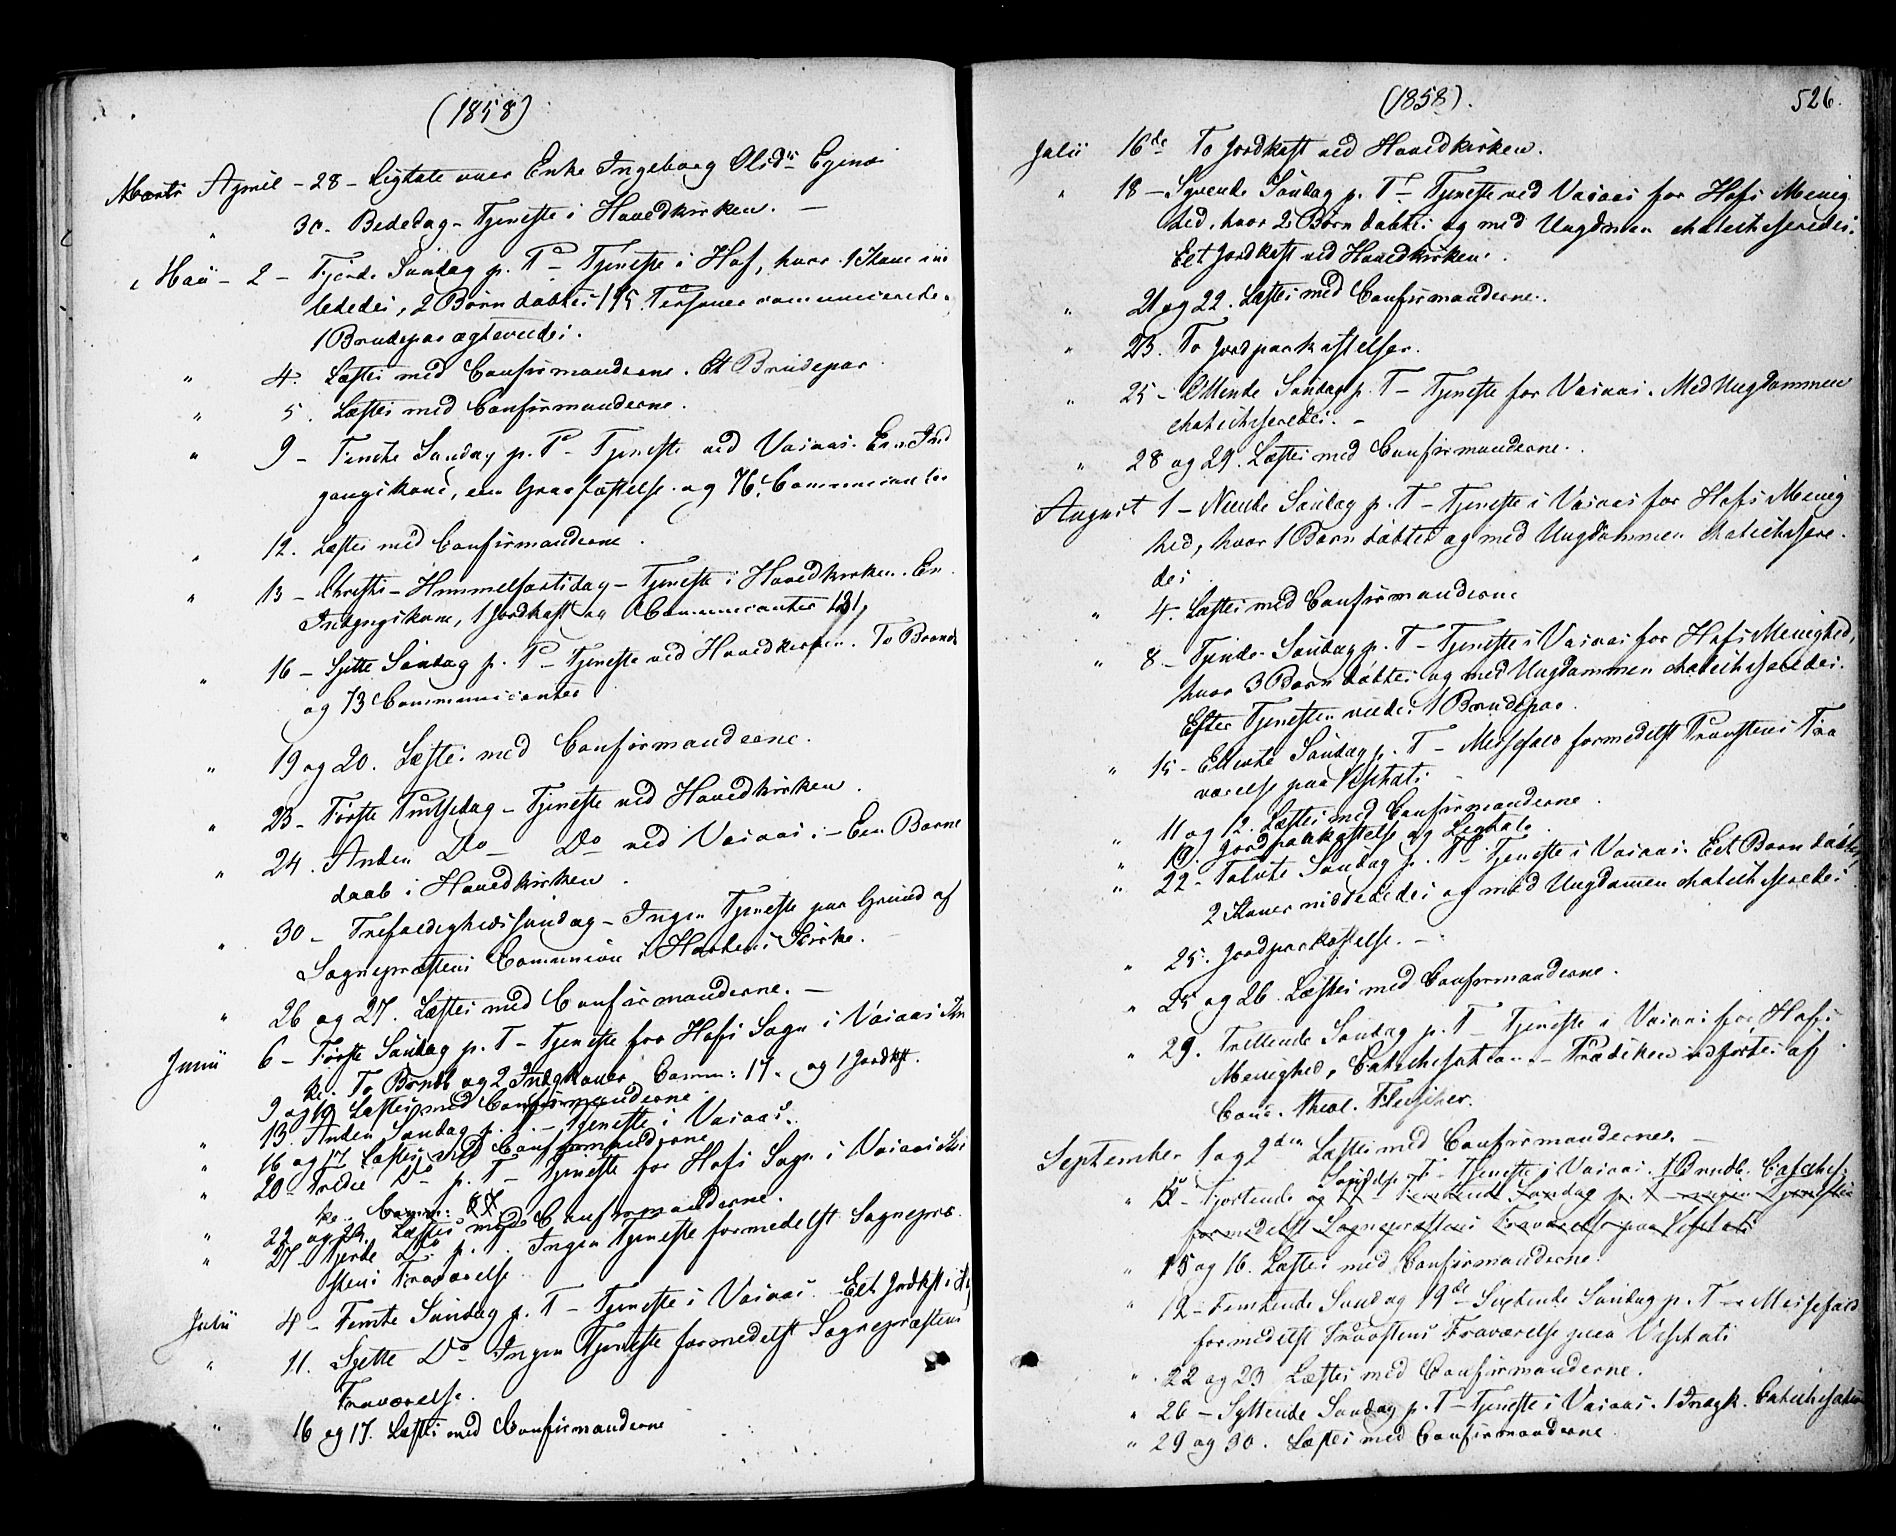 (1858)
April - 28 - Ligtale over Enke Ingeborg Olsdr
" 30. Bededag - Tjeneste i Hovedkirken. -
Maii - 2 - Fjerde Søndag p. P - Tjeneste i Hof, hvor 1 Kone ind
lededes, 2 Børn døbtes, 15 Personer communicerede.
1 Brudepar ægteviedes.
" 4. Læstes med Confirmanderne. Et Brudepar
" 5. Læstes med Confirmanderne.
" 9 - Femte Søndag p. P - Tjeneste ved Vaaaas. En Ind
gangskone, een Gravfæstelse og 76 Communicanter
" 12. Læstes med Confirmanderne.
" 13 - Christi-Himmelfartsdag - Tjeneste i Hovedkirken. En
Indgngskone, 1 Jordkast og Communicanter 121,
" 16 - Sjette Søndag p. P - Tjeneste ved Hovedkirken. To Brønd
og 73 Communicanter
" 19 og 20. Læstes med Confirmanderne.
" 23 - Første Pintsedag - Tjeneste ved Hovedkirken.
" 24. Anden Do - Do ved Vaaaas. - Een Barne
daab i Hovedkirken.
" 30 - Trefoldighedssøndag - Ingen Tjeneste paa Grund af
Sognepræstens Communion i Kirke.
" 26 og 27. Læstes med Confirmanderne. -
Junii 6 - Første Søndag p. T - Tjeneste for Hofs Sogn i Vaaaas Kir
ke. To Brndb og 2 Indgkoner. Comm: 17. og 1 Jordkst.
9 og 10 Læstes med Confirmanderne
" 13. Anden Søndag p. T. - Tjeneste i Vaaaas.
" 16 og 17 Læstes med Confirmanderne
" 20 - Tredie Do p. T - Tjeneste for Hofs Sogn i Vaaaas Kir
ke. Comm:
" 22 og 23. Læstes med Confirmanderne.
" 27. Fjerde Do p. T. Ingen Tjeneste formedelst Sognepræ
stens Fraværelse
Julii 4 - Femte Søndag p. T - Tjeneste i Vaaaas. Eet Jordkst i
" 11. Sjette Do Ingen Tjeneste formedelst Sognepræstens
Fraværelse.
" 16 og 17. Læstes med Confirmanderne
(1858).
526.
Julii 16de To Jordkast ved Hovedkirken.
" 18 - Syvende Søndag p. T - Tjeneste ved Vaaaas for Hofs Menig
hed, hvor 2 Børn døbtes og med Ungdmen chatechiseredes.
Eet Jordkast ved Hovedkirken.
" 21 og 22. Læstes med Confirmanderne.
" 23. To Jordpaakastelser.
" 25 - Ottende Søndag p. T - Tjeneste for Vaaaas. Med Ungdommen
chatechiseredes. -
" 28 og 29. Læstes med Confirmanderne.
August 1 - Niende Søndag p. T - Tjeneste i Vaaaas for Hofs Menig
hed, hvor 1 Barn døbtes og med Ungdommen chatechisere.
des
" 4. Læstes med Confirmanderne
" 8 - Tiende Søndag p. T - Tjeneste i Vaaaas for Hofs Menighed,
hvor 3 Børn døbtes og med Ungdommen chatechiseredes.
Efter Tjenesten viedes 1 Brudepar.
" 15 - Ellevte Søndag p. T - Messefald formedelst Provstens Fra
værelse paa Visitats.
" 11 og 12. Læstes med Confirmanderne.
" 19. Jordpaakastelse og Ligtale.
" 22 - Tolvte Søndag p. T - Tjeneste i Vaaaas. Eet Barn døbtes,
2 Koner indlededes og med Ungdomen chatechiseredes
" 25. Jordpaakastelse. -
" 25 og 26. Læstes med Confirmanderne.
" 29. Trettende Søndag p. T - Tjeneste i Vaaaas for Hofs
Menighed, Catechisation - Prædiken udførtes af
Cand. theol. Fleischer.
September 1 og 2den Læstes med Confirmanderne. -
Søndg p. T - Tjeneste i Vaaaas. 1 Brndb. Catechis.
" - Fjortende og Femtende Søndag p. T - ingen Tjeneste
formedelst Sognepræstens Fraværelse paa Visitats
" 15 og 16. Læstes med Confirmanderne.
" 12 - Femtende Søndag 19de Sextende Søndag p. T - Messefald
formedelst Provstens Fraværelse paa Visitats
" 22 og 23 Læstes med Confirmanderne.
" 26 - Syttende Søndag p. T - Tjeneste i Vaaaas. 1 Indgk. Catechisation
" 29 og 30. Læstes med Confirmanderne.